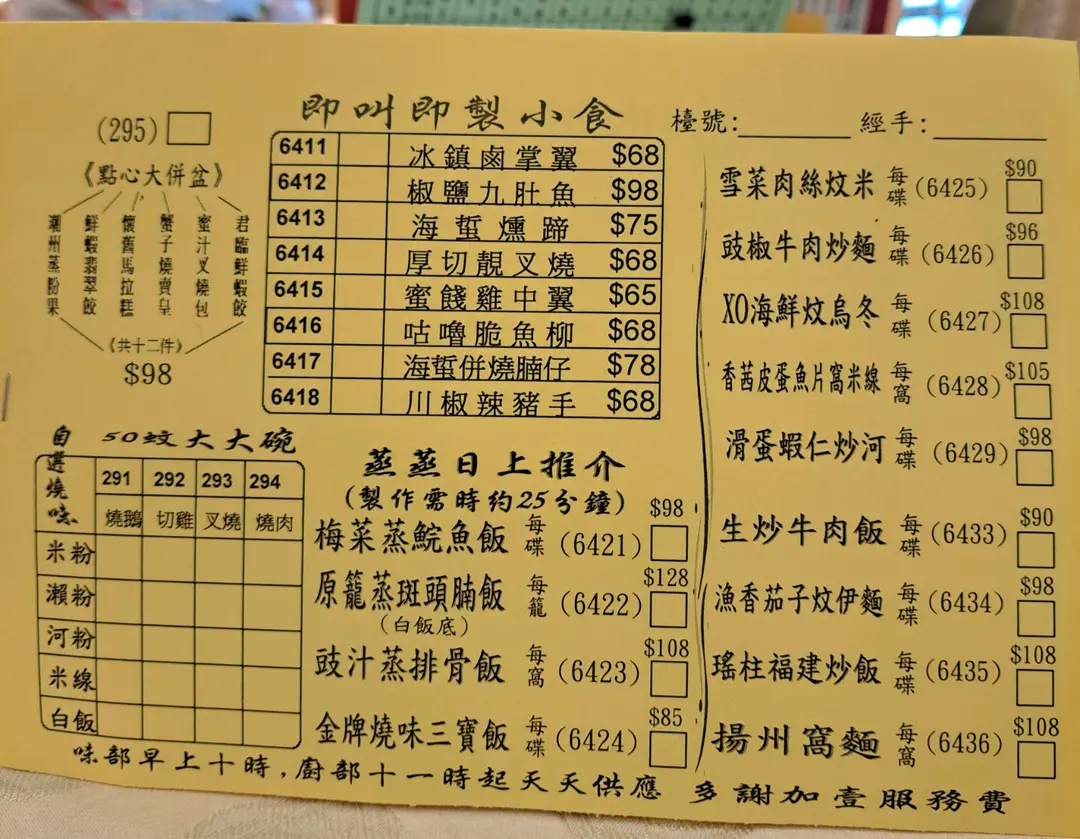 即叫即製小食
檯號: 經手:
(295)
《點心大併盆》
潮州蒸粉果
鮮蝦翡翠餃
懷舊馬拉糕
蟹子燒賣皇
蜜汁叉燒包
君臨鮮蝦餃
《共十二件》
$98
6411 冰鎮鹵掌翼 $68
6412 椒鹽九肚魚 $98
6413 海蜇燻蹄 $75
6414 厚切靚叉燒 $68
6415 蜜餞雞中翼 $65
6416 咕嚕脆魚柳 $68
6417 海蜇併燒腩仔 $78
6418 川椒辣豬手 $68
50蚊大大碗
自選燒味
291 292 293 294
燒鵝 切雞 叉燒 燒肉
米粉
瀨粉
河粉
米線
白飯
蒸蒸日上推介
(製作需時約25分鐘)
梅菜蒸鯇魚飯 每碟 (6421) $98
原籠蒸斑頭腩飯 每籠 (6422) $128
(白飯底)
豉汁蒸排骨飯 每窩 (6423) $108
金牌燒味三寶飯 每碟 (6424) $85
雪菜肉絲炆米 每碟 (6425) $90
豉椒牛肉炒麵 每碟 (6426) $96
XO海鮮炆烏冬 每碟 (6427) $108
香茜皮蛋魚片窩米線 每窩 (6428) $105
滑蛋蝦仁炒河 每碟 (6429) $98
生炒牛肉飯 每碟 (6433) $90
漁香茄子炆伊麵 每碟 (6434) $98
瑤柱福建炒飯 每碟 (6435) $108
揚州窩麵 每窩 (6436) $108
味部早上十時,廚部十一時起天天供應 多謝加壹服務費